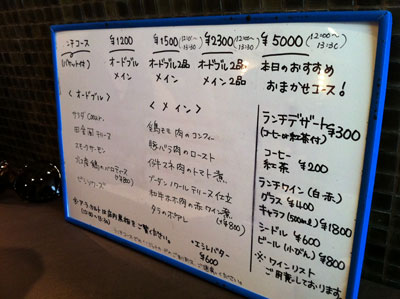 ランチコース ¥1200 ¥1500(12:00〜13:30) ¥2300(12:00〜13:30) ¥5000(12:00〜13:30)
(バケット付) オードブル オードブル2品 オードブル2品 本日のおすすめ
メイン メイン メイン2品 おまかせコース!
<オードブル> <メイン>
サラダ
田舎風テリーヌ
スモークサーモン
鶏のバロティーヌ
鶏モモ肉のコンフィー
豚バラ肉のロースト
仔牛スネ肉のトマト煮
ブーダンノワール テリーヌ仕立
和牛ホホ肉の赤ワイン煮
(+¥800)
タラのポワレ
エシレバター
¥600
ランチデザート ¥300
(コーヒーor紅茶付)
コーヒー
紅茶 ¥200
ランチワイン(白・赤)
グラス ¥400
キャラフ(500ml) ¥1800
シードル ¥600
ビール(小びん) ¥800
※ワインリスト
ご用意しております